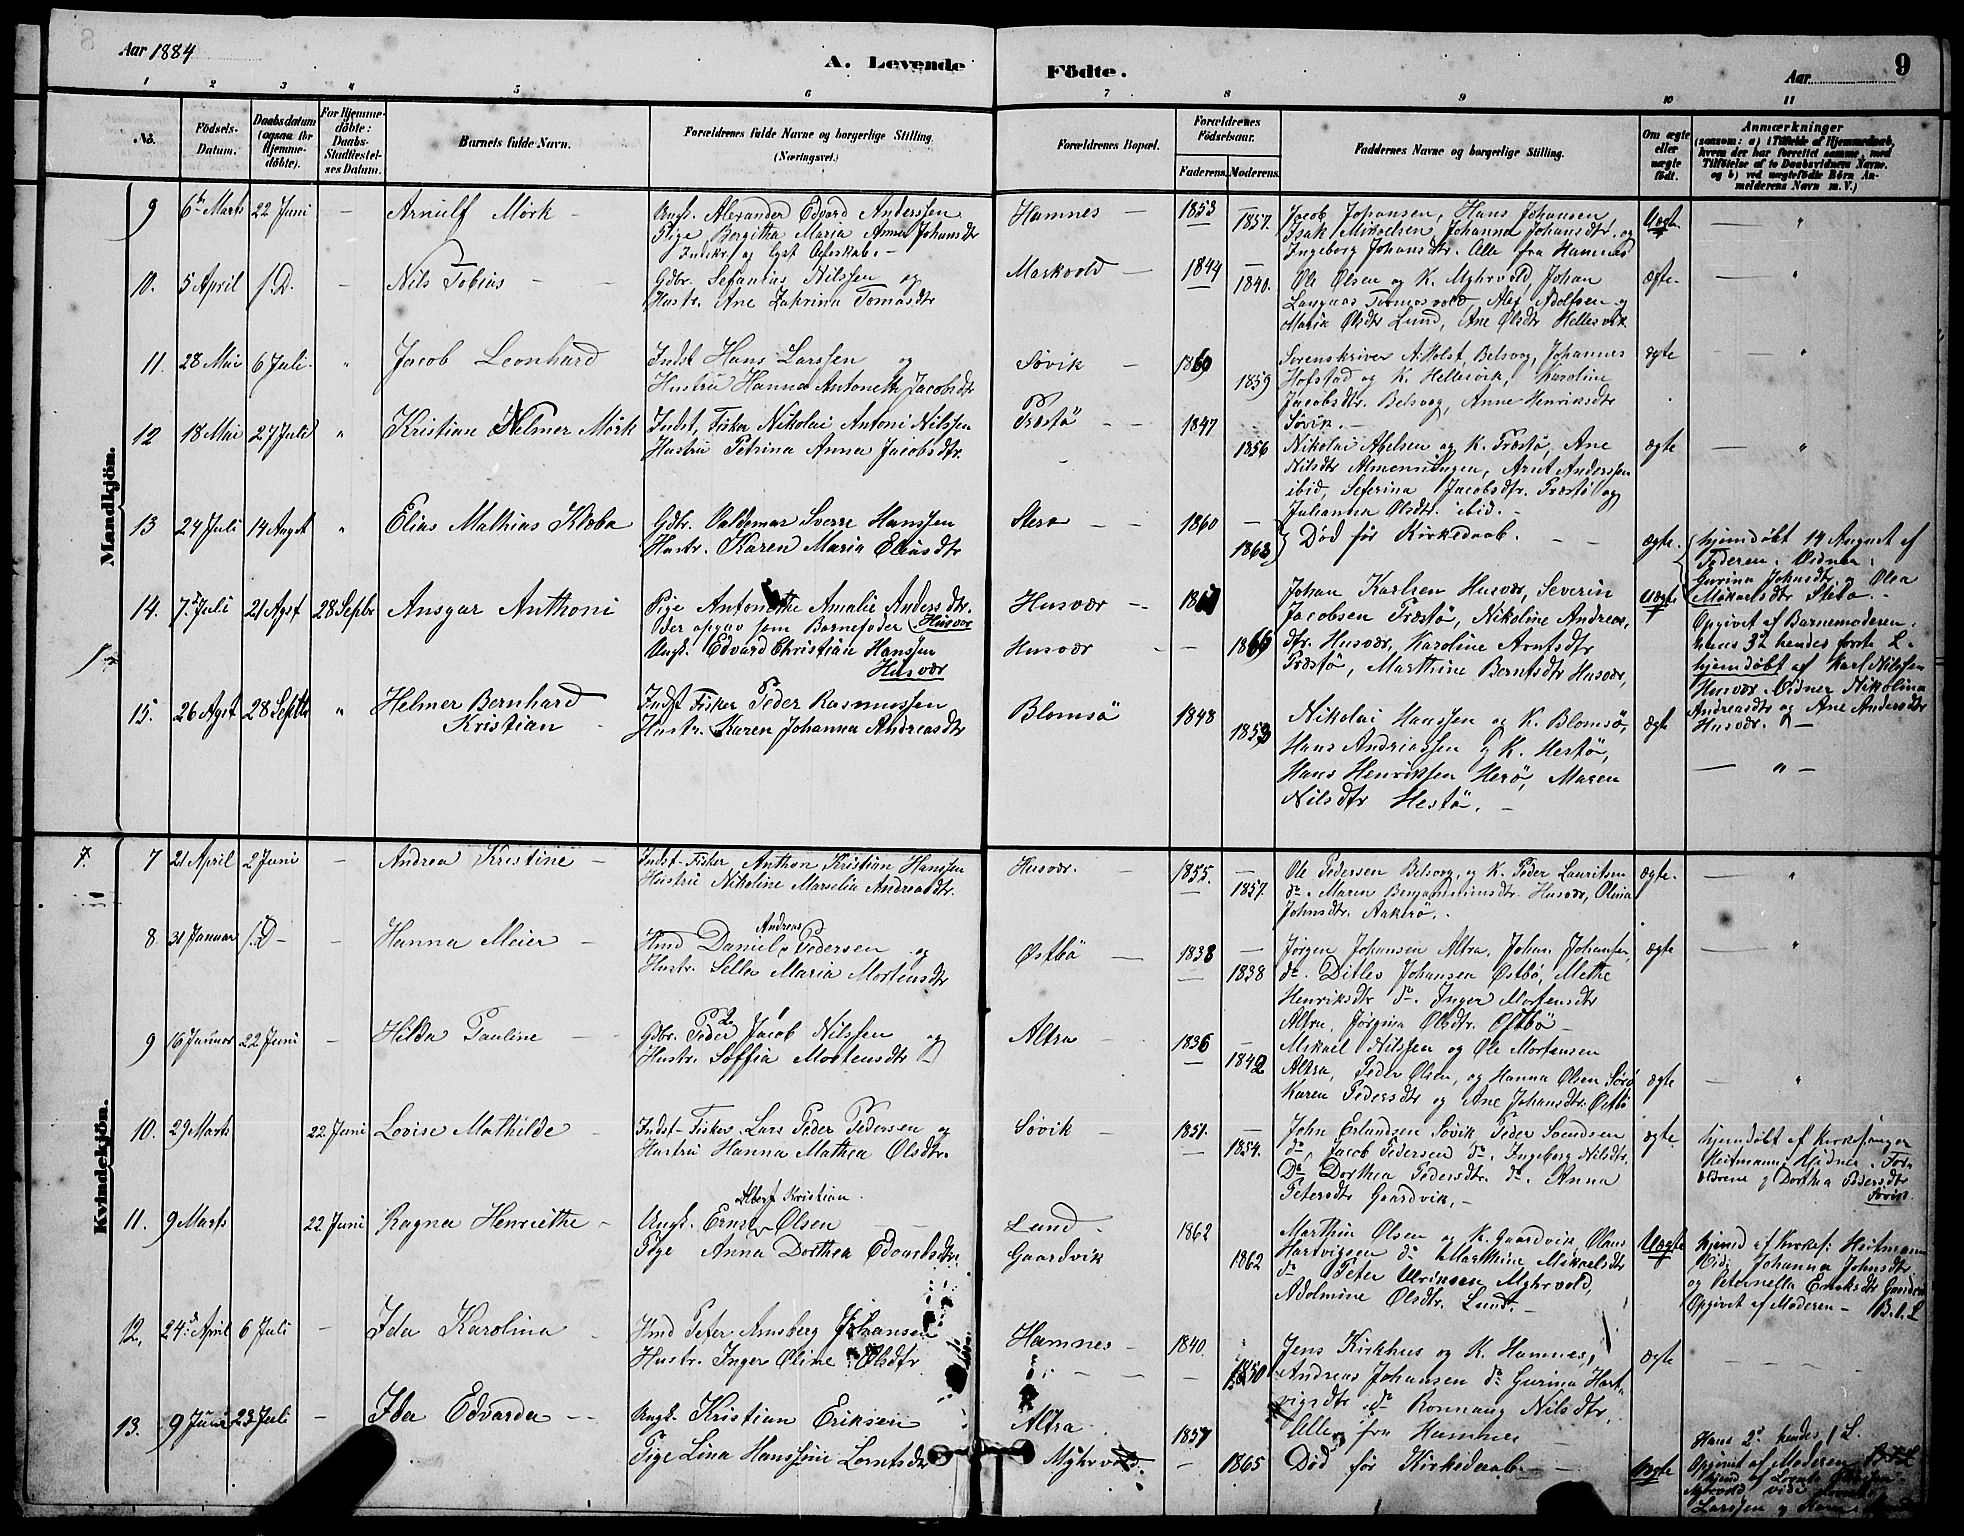 Aar 1884
A. Levende Födte.
Aar 9
1 2 3 4 5 6 7 8 9 10 11
No.
Födsels-Datum.
Daabsdatum (ogsaa for Hjemme-döbte).
For Hjemme-döbte: Daabs-Stadfæstel-ses Datum.
Barnets fulde Navn.
Forældrenes fulde Navne og borgerlige Stilling. (Næringsvei.)
Forældrenes Bopæl.
Forældrenes Födselsaar. Faderens. Moderens.
Faddernes Navne og borgerlige Stilling.
Om ægte eller uægte födt.
Anmærkninger (saasom: a) i Tilfælde af Hjemmedaab, hvem der har forrettet samme, med Tilföielse af to Daabsvidners Navne. og b) ved uægtefödte Börn An-melderens Navn m. V.)
Mandkjön.
9 6te Marts 22 Juni — Arnulf Mörk — Ungk. Alexander Edvard Anderssen
Pige Bergitha Maria Anna Johansdtr
Hamnes — 1853 — 1857.
Jacob Johansen, Hans Johansen,
Isak Mikkelsen, Johanna Johansdtr. og
Ingeborg Johansdtr. Alle fra Hamnes
Uægte — "
10. 5 April 1.D. — Nils Tobias — Gdbr. Sefanias Nilssen og
Hustr. Ane Zakrina Tomasdtr
Markvold — 1844 — 1840.
Ole Olsen og K. Myhrvold, Johan
Langnas Tormosvold, Alex Adolfsen og
Maria Olsdtr Lund, Ane Olsdtr Hellesvik
ægte. — "
11. 28 Mai 6 Juli. " Jacob Leonhard Indst Hans Larssen og
Hustru Hanna Antonette Jacobsdtr
Søvik — 1860 1859
Sorenskriver A. Holst, Belsvog, Johannes
Hofstad og K. Hellesvik, Karoline
Jacobsdtr. Belsvog, Anne Henriksdtr
Søvik. —
ægte — "
12 18 Mai 27 Juli " Kristian Helmer Mörk Indst, Fisker Nikolai Antoni Nilssen
Hustru Petrina Anna Jacobsdtr.
Præstö — 1847 1856
Nikolai Abelsen og K. Præstö, Ane
Nilsdtr Almenningen, Arnt Anderssen
ibid, Seferina Jacobsdtr. Præstö og
Julianna Olsdtr. ibid. —
ægte "
13 24 Juli 14 Augst " Elias Mathias Klæbo Gdbr. Valdemar Sverre Hanssen
Hustr. Karen Maria Eliasdtr
1860 — 1863
Död før Kirkedaab. —
ægte. hjemdøbt 14 August af
Federen. Vidner:
Gurina Johnsdtr. og Olea
Mikaelsdtr
14. 7. Juli 21 Agst 28 Septbr Ansgar Anthoni Pige Antonethe Amalie Andersdtr.
Der opgav som Barnefader Husvær
Ungk. Edvard Christian Hanssen
Husvær
Husvær —
Husvær —
1866
Johan Karlsen Husvær, Severin
Jacobsen Præstö, Nikoline Andreas
dtr. Husvær, Karoline Arntsdtr
Præstö, Marthine Berntsdtr Husvær,
Uægte Opgivet af Barnemoderen.
hans 3d hendes første L.
hjemdøbt af Karl Nilssen
Husvær. Vidner Nikolina
Andreasdtr og Ane Andersdtr
Husvær. —
15. 26 Agst 28 Septbr " Helmer Bernhard
Kristian —
Indst Fisker Peder Rasmussen
Hustr. Karen Johanna Andreasdtr
Blomsö 1848 1853
Nikolai Hanssen og K. Blomsö,
Hans Andriassen og K. Hestö,
Hans Henrikssen Herö, Maren
Nilsdtr Hestö. —
ægte — " —
Kvindekjön.
7. 7 21 April 2 Juni — Andrea Kristine — Indst-Fisker Anthon Kristian Hanssen
Hustru Nikoline Marselia Andreasdtr.
Husvær. — 1855. — 1857.
Ole Pedersen Belsvog, og K. Peder Lauritsen
do. Maren Benjaminsdtr. Husvær, Olina
Johnsdtr. Aakerö. —
ægte. — "
8 31 Januar 1.D — Hanna Meier — Hmd Daniel Andreas Pedersen og
Hustr. Maria Mortensdtr
Østbö — 1838 — 1838
Jørgen Johansen Altra, Johan Johansen
do. Ditlev Johansen Østbö, Methe
Henriksdtr do. Inger Mortensdtr
Altra. Jørgina Olsdtr. Østbö —
ægte — "
9 16 Januar 22 Juni — Hilda Pauline — Gdbr. Peder Jacob Nilssen og
Hustr. Soffia Mortensdtr
Altra — 1836 — 1842
Mikael Nilssen og Ole Mortensen
Altra, Peder Olsen, og Hanna Olsen Sørö
Karen Pedersdtr og Ane Johansdtr. Östbö
ægte — "
10. 29 Marts 22 Juni Lovise Mathilde — Indst-Fisker Lars Peder Pedersen og
Hustru Hanna Mathea Olsdtr.
Søvik — 1851. — 1854.
John Erlandsen Søvik, Peder Svendsen
do, Jacob Pedersen do. Ingeborg Nilsdtr.
Do Dorthea Pedersdtr. do. Anna
Petersdtr Gaardvik. —
ægte hjemdøbt af Kirkesanger
Heitmann. Vidner.
og Dorthea Pedersdtr
Søvik
11. 9 Marts 22 Juni Ragna Henriethe — Ungk. Ernst Albert Kristian Olsen
Pige Anna Dorthea Edvardsdtr.
Lund —
Gaardvik
1862 1862
Marthin Olsen og K. Gaardvik Olaus
Hartvigsen do Marthine Mikaelsdtr
do Peter Ulriksen Myhrvold,
Adolmine Olsdtr. Lund. —
Uægte hjemd af Kirkes: Heitmann
Vid: Johanna Johnsdtr
og Peternella Eriksdtr
Opgivet af Moderen — B.1.L
12. 24. April 6 Juli — Ida Karolina — Hmd Peter Amberg Johansen
Hustr. Inger Oline Olsdtr
Hamnes — 1840. 1850
Jens Kirkhus og K. Hamnes,
Andreas Johansen do. Gurina Hart
vigsdtr. do Ronnaug Nilsdtr.
Alle fra Hamnes —
ægte — — —
13. 9 Juni 23 Juli — Ida Edvarda — Ungk. Kristian Eriksen
Pige Lina Hanssine Lorntsdtr
Altra
Myhrvold.
1857 — 1865
Död før Kirkedaab. —
Uægte Hans 2d hendes 1 L.
Opgivet af Moderen
hjemd af
Larssen og